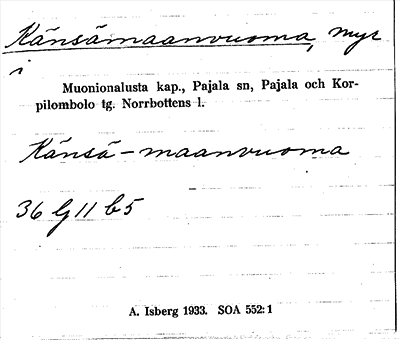 Känsämaanvuoma, myr
i
Muonionalusta kap., Pajala sn, Pajala och Kor-
pilombolo tg. Norrbottens l.
Känsä-maanvuoma
36 lj 11 b5
A. Isberg 1933. SOA 552:1